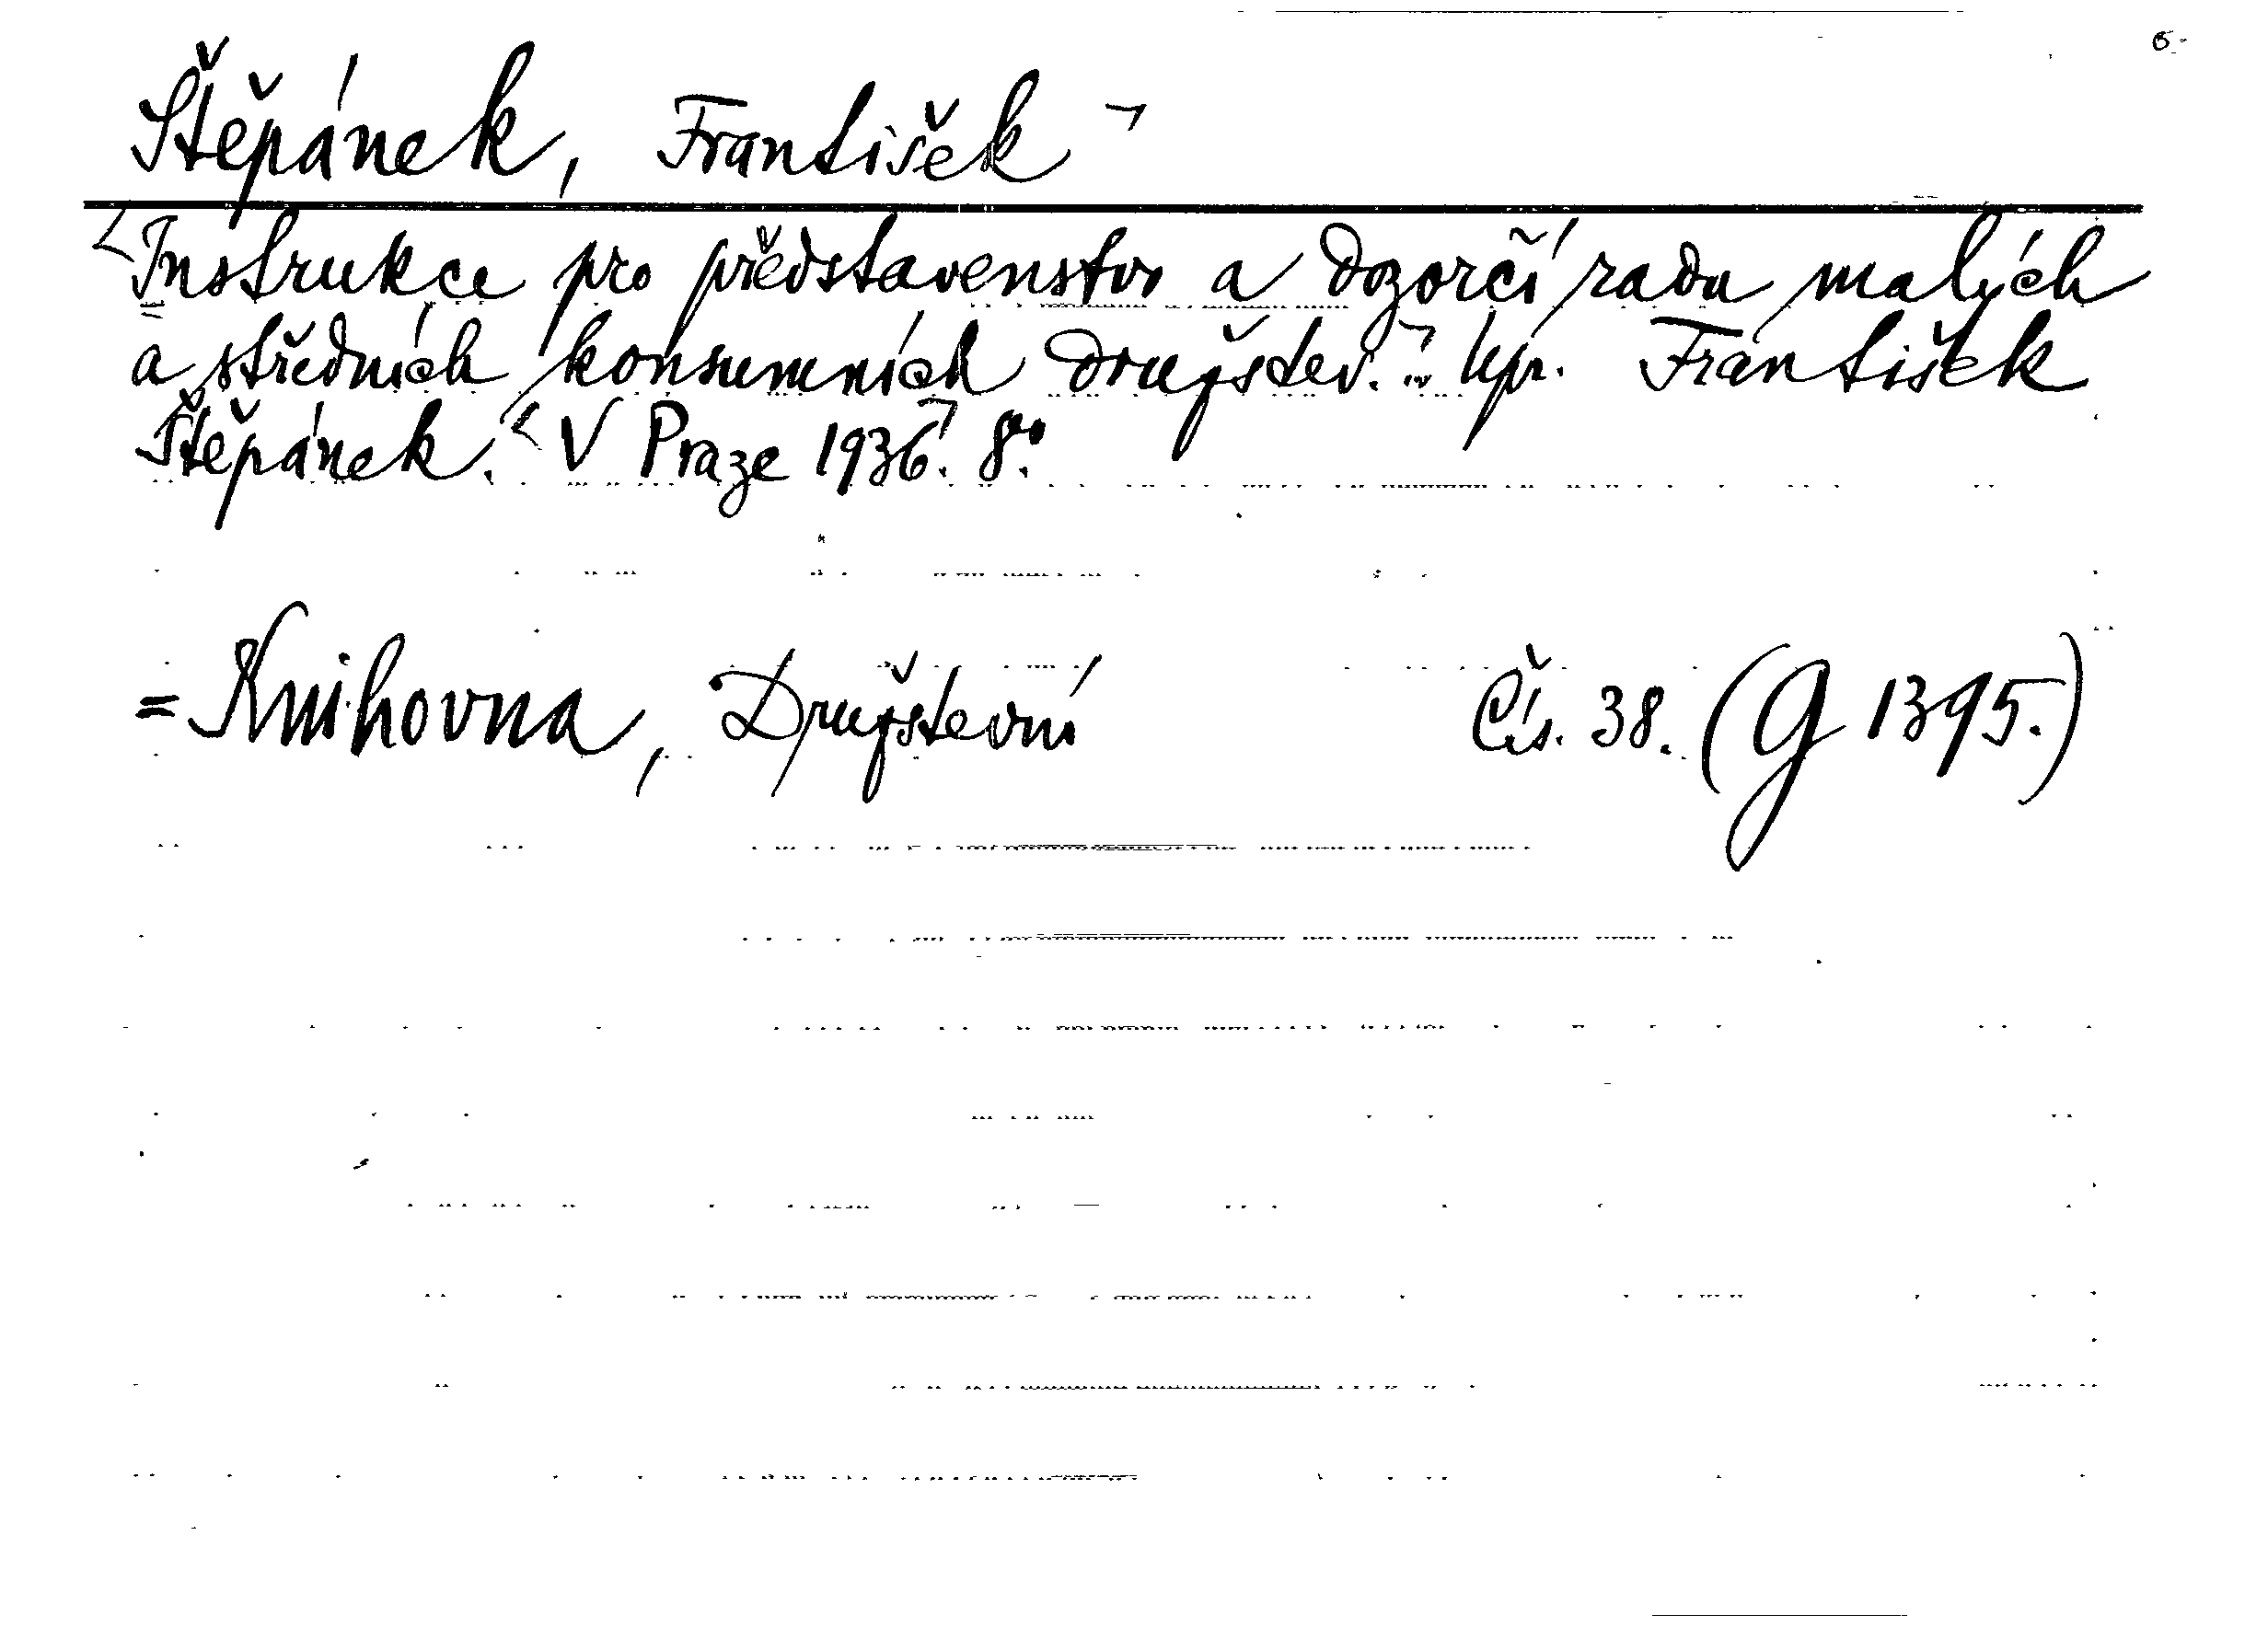 Štěpánek, František
Instrukce pro představenstvo a dozorčí radu malých
a středních konsumních družstev. ... Upr. František
Štěpánek. V Praze 1936. 8°.
= Knihovna, Družstevní Čís. 38. (G 1395.)